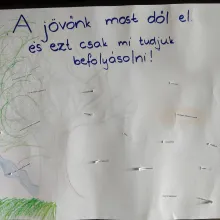 A jövőnk most dől el
és ezt csak mi tudjuk
befolyásolni!